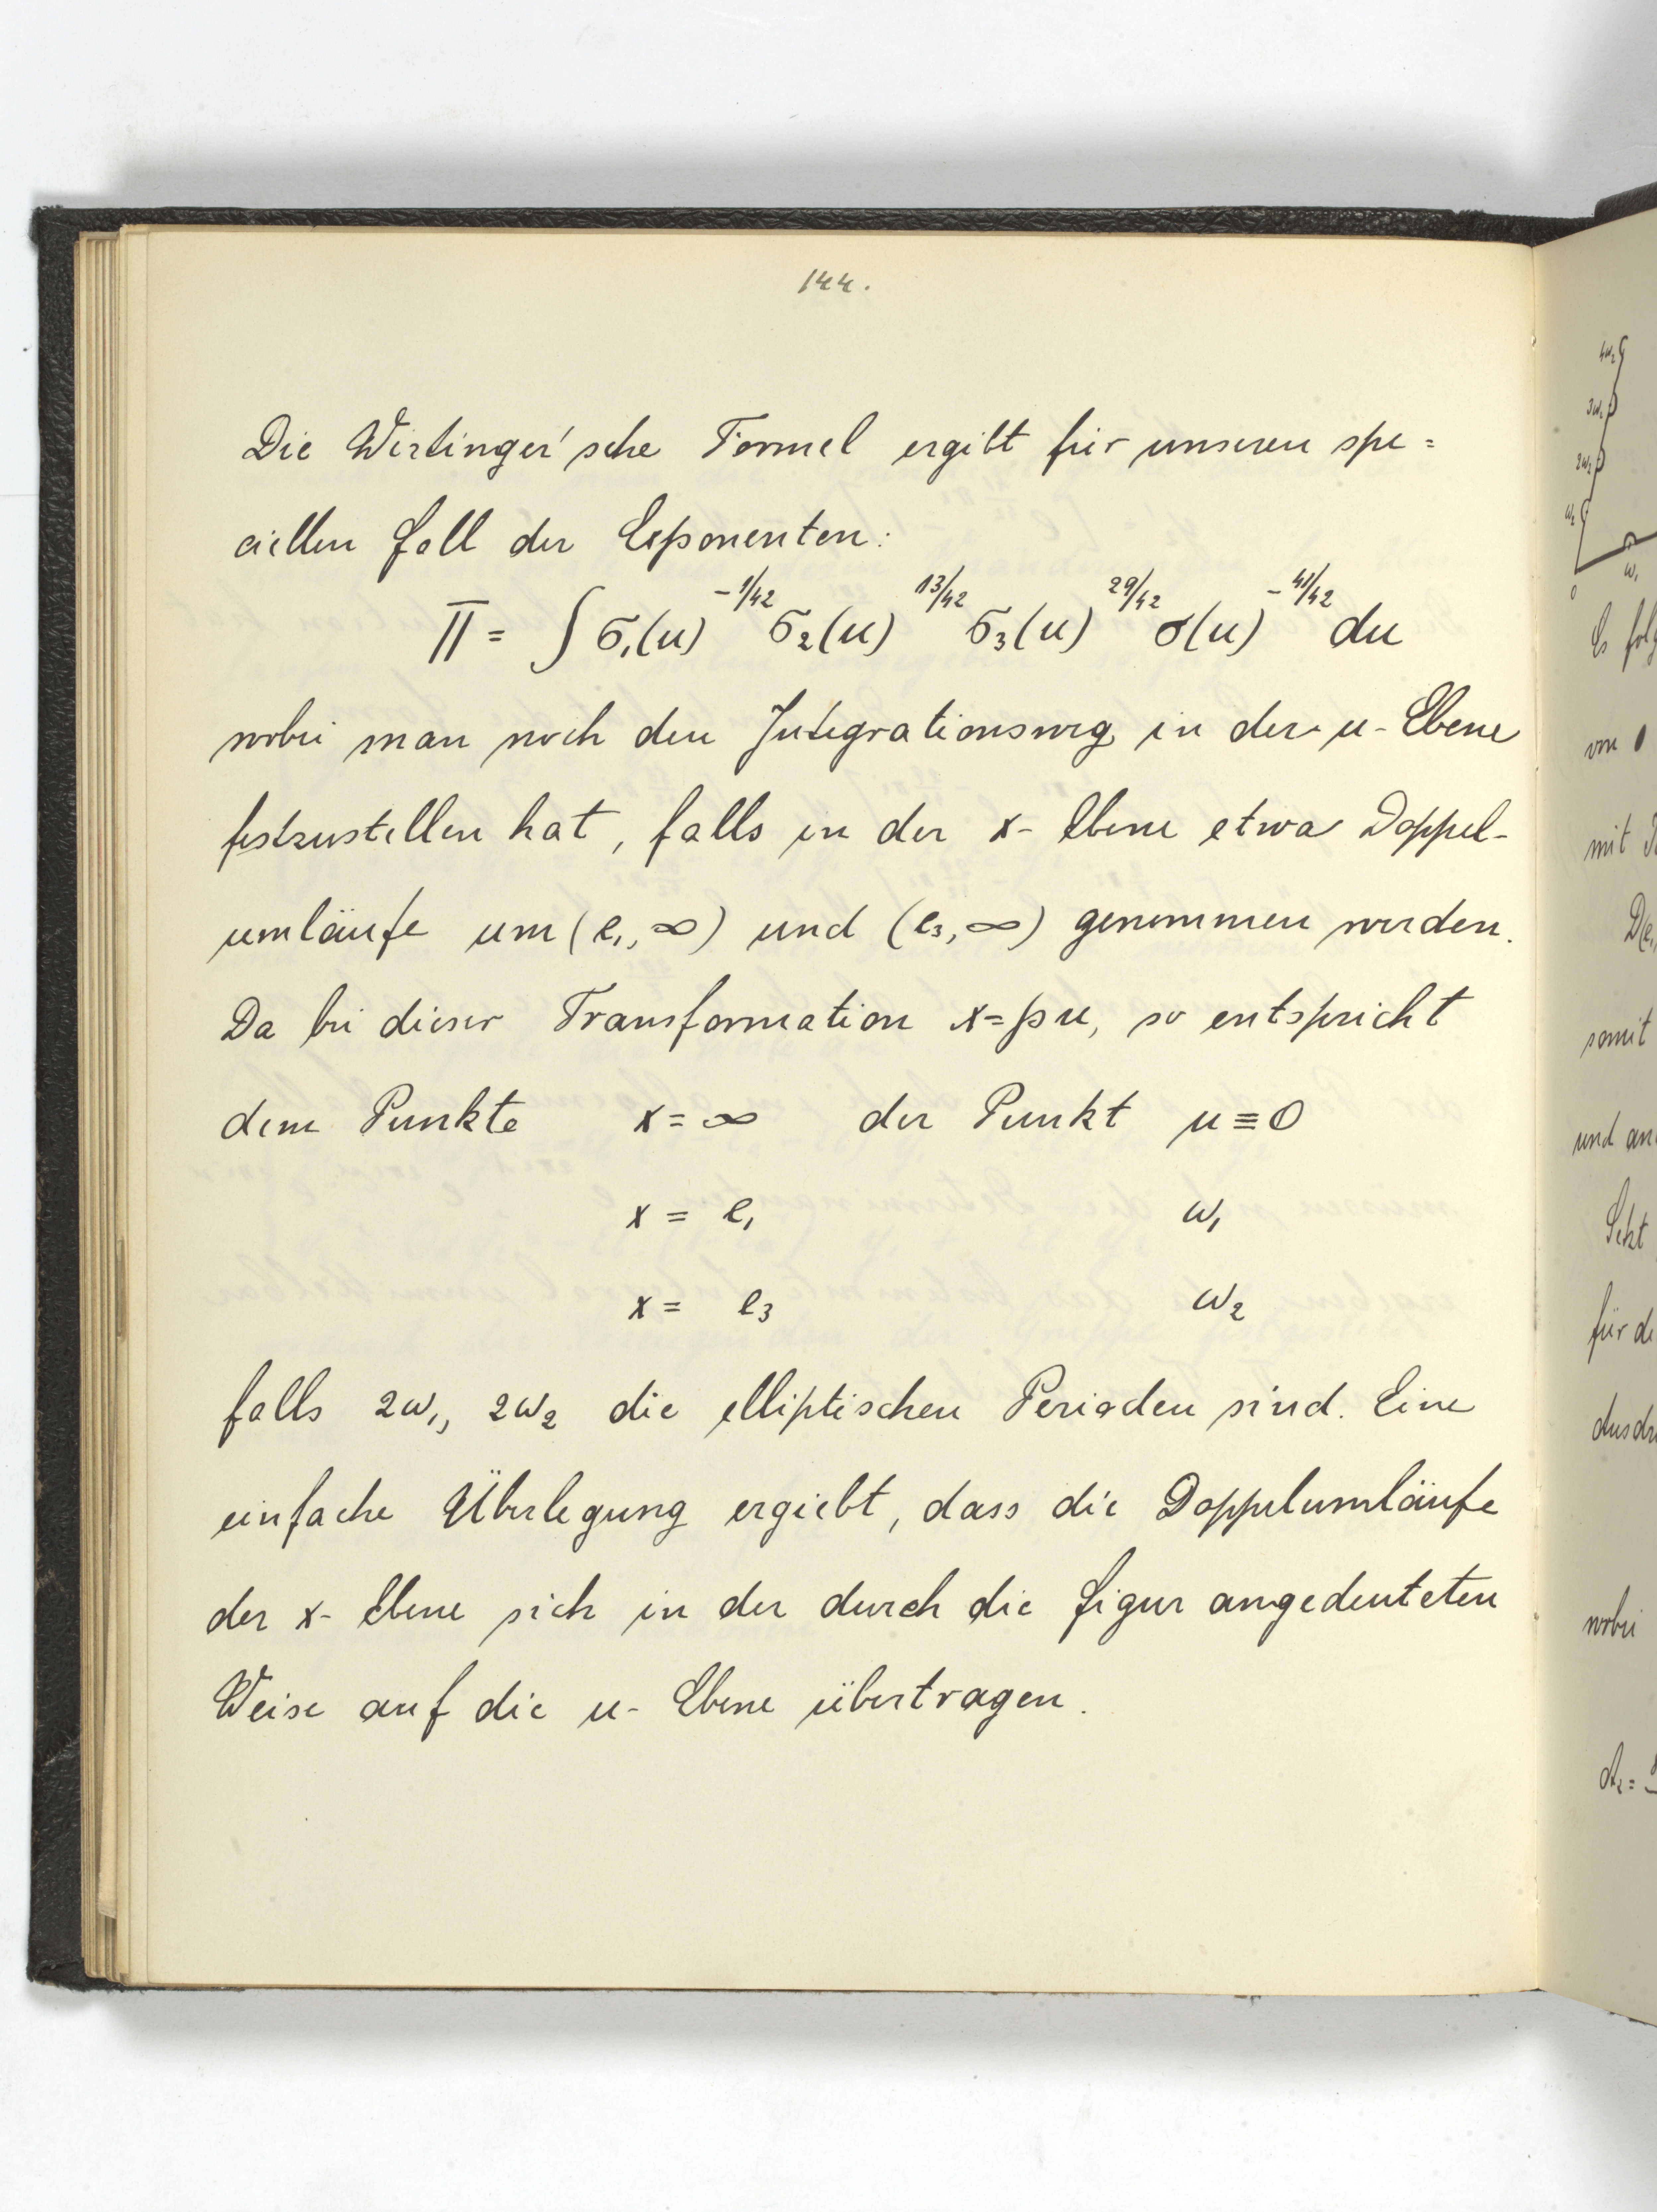 144.
Die Wirtinger'sche Formel ergibt für unseren spe=
ciellen Fall der Exponenten:
Π = ∫ σ₁(u)^{-1/42} σ₂(u)^{13/42} σ₃(u)^{29/42} σ(u)^{-41/42} du
wobei man noch den Integrationsweg in der u-Ebene
festzustellen hat, falls in der x-Ebene etwa Doppel-
umläufe um (e₁, ∞) und (e₃, ∞) genommen werden.
Da bei dieser Transformation x=℘u, so entspricht
dem Punkte x=∞ der Punkt u≡0
x = e₁ ω₁
x = e₃ ω₂
falls 2ω₁, 2ω₂ die elliptischen Perioden sind. Eine
einfache Überlegung ergiebt, dass die Doppelumläufe
der x-Ebene sich in der durch die Figur angedeuteten
Weise auf die u-Ebene übertragen.
4ω₂
3ω₂
2ω₂
ω₂
0 ω₁
Es folg
von 0
mit
D(e₁,
somit
und an
Setzt
für di
Ausdr
wobei
A₂=